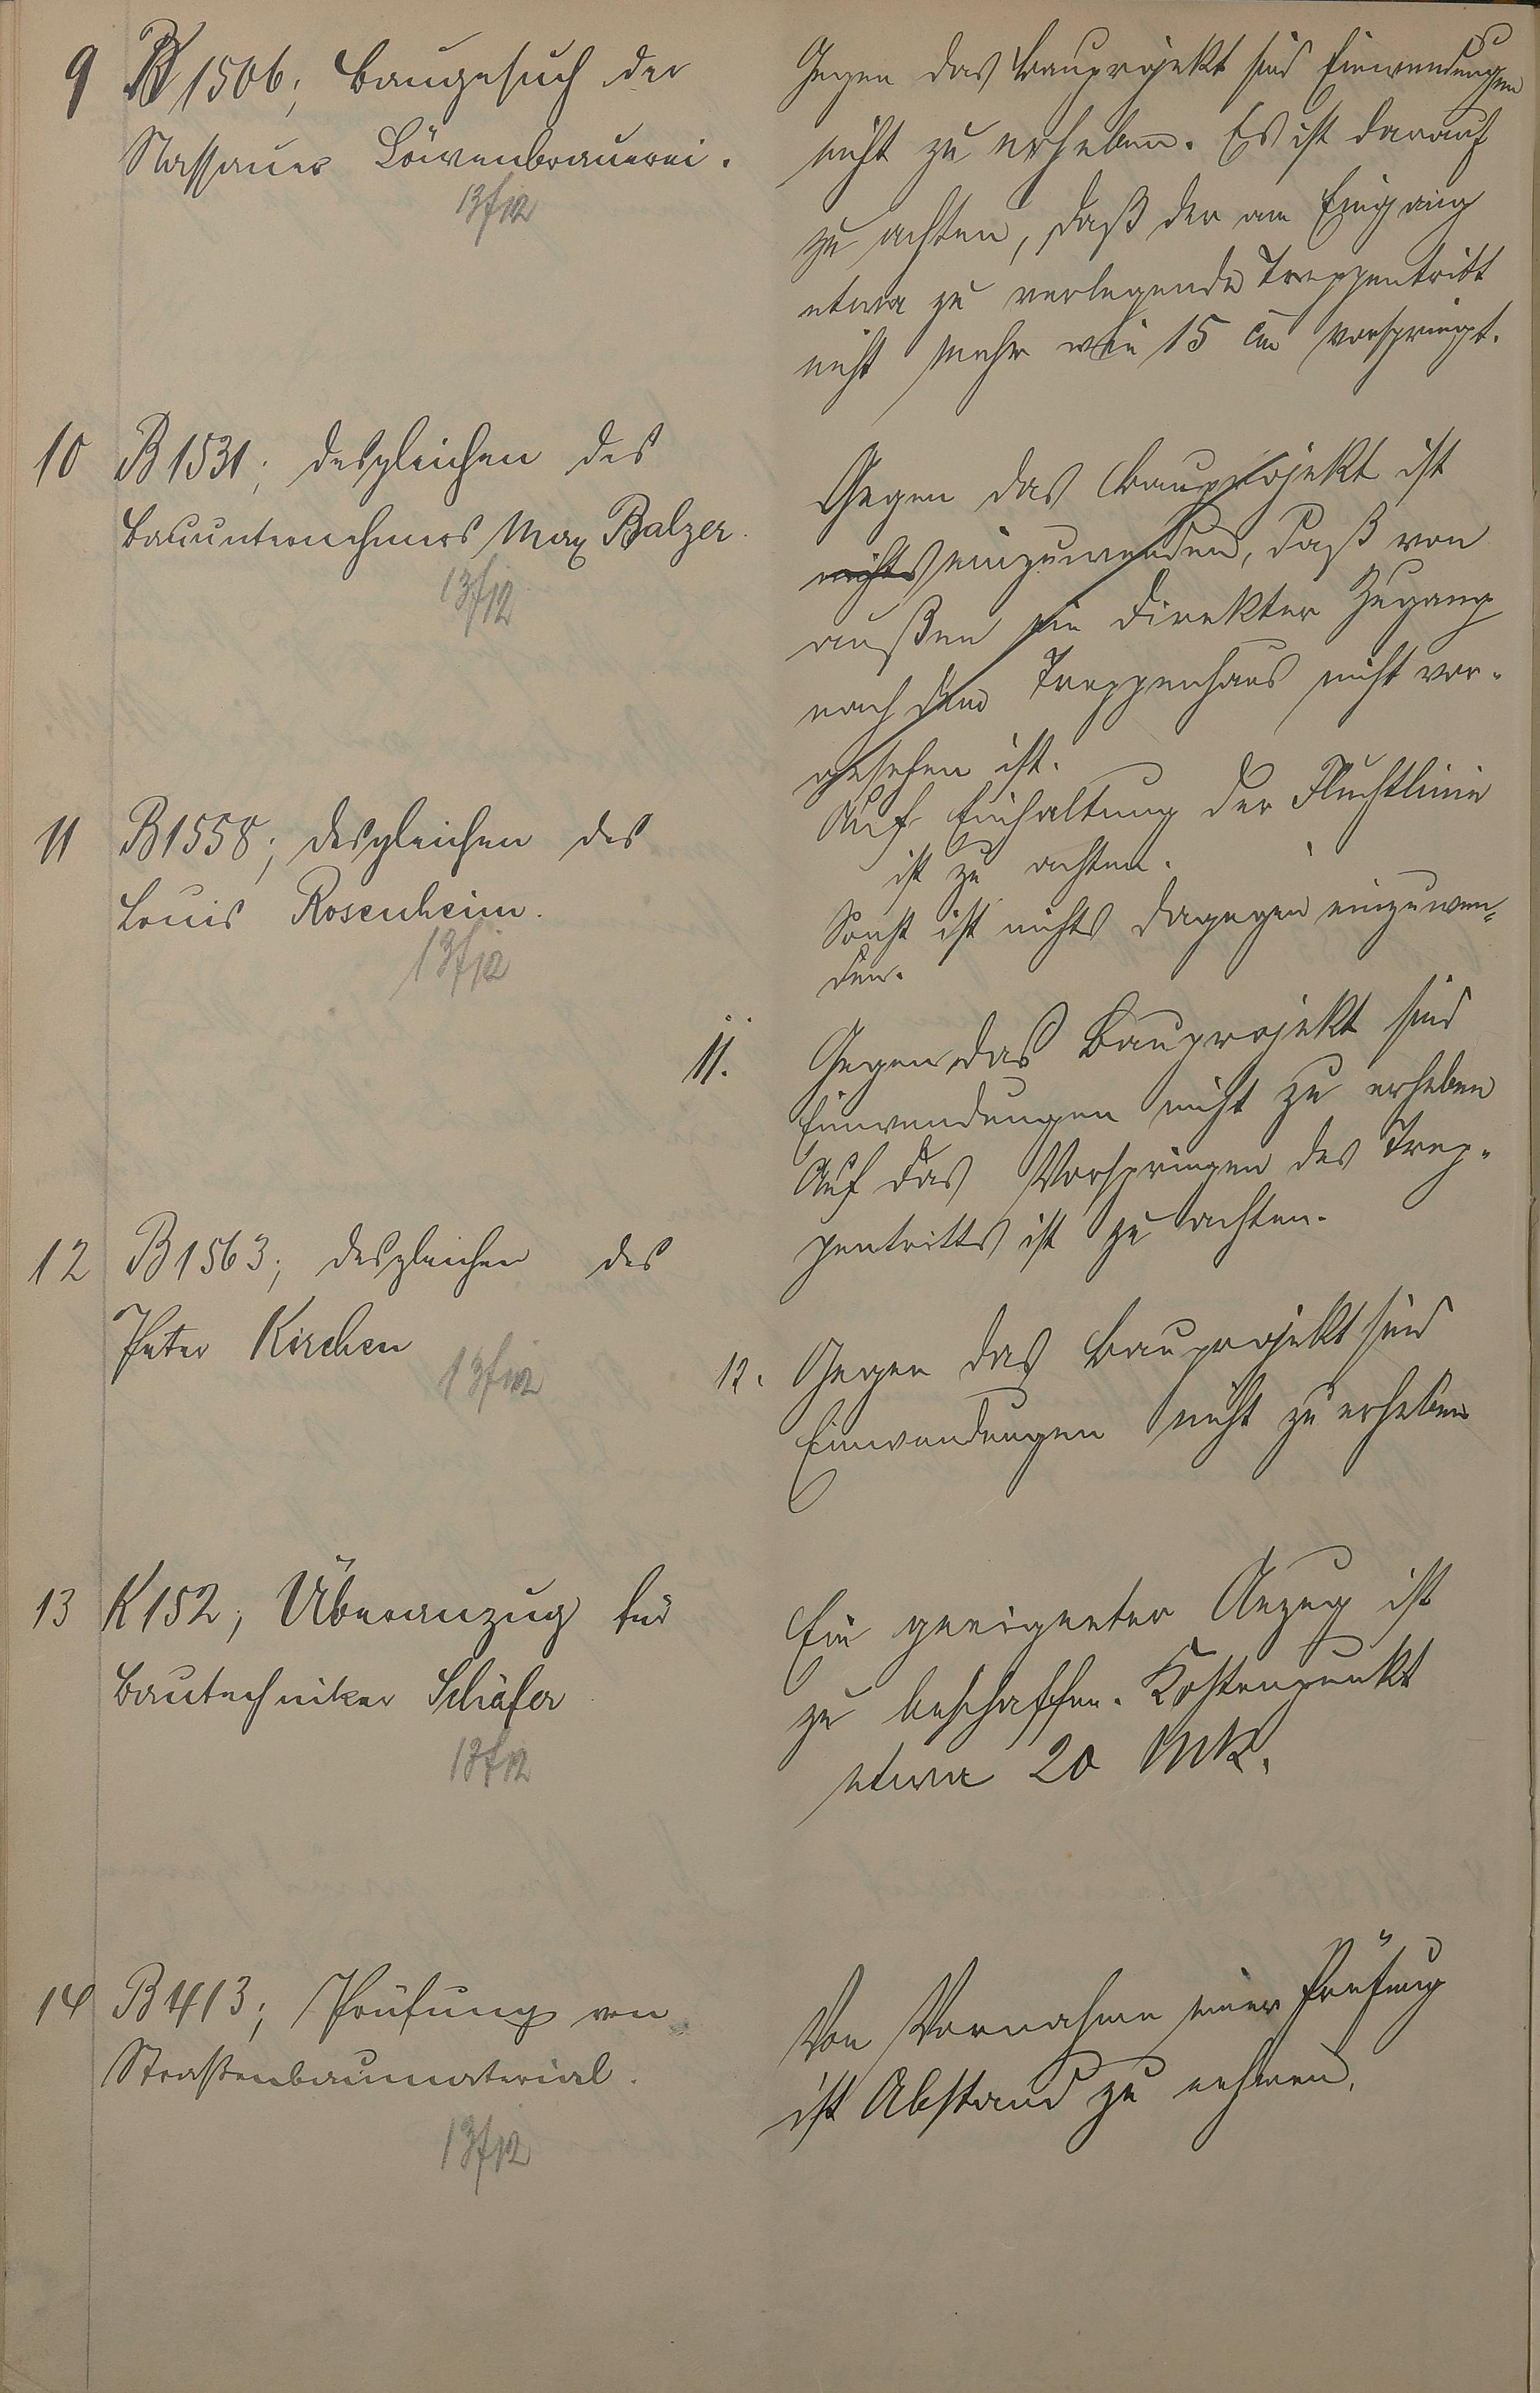 9 B 1506; Baugesuch der
Nassauer Löwenbrauerei.
13/12
Gegen das Bauprojekt sind Einwendungen
nicht zu erheben. Es ist darauf
zu achten, daß der am Eingang
etwa zu verlegende Treppentritt
nicht mehr wie 15 cm vorspringt.
10 B 1531; desgleichen des
Bauunternehmers Max Balzer.
13/12
Gegen das Bauprojekt ist
nichts einzuwenden, daß von
außen ein direkter Zugang
nach dem Treppenhaus nicht vor-
gesehen ist.
Auf Einhaltung der Fluchtlinie
ist zu achten.
Sonst ist nichts dagegen einzuwen-
den.
11 B 1558; desgleichen des
Louis Rosenheim.
13/12
11. Gegen das Bauprojekt sind
Einwendungen nicht zu erheben
Auf das Vorspringen des Trep-
pentritts ist zu achten.
12 B 1563; desgleichen des
Peter Kirchen
13/12
12. Gegen das Bauprojekt sind
Einwendungen nicht zu erheben
13 K 152; Überanzug für
Bautechniker Schäfer
13/12
Ein geeigneter Anzug ist
zu beschaffen. Kostenpunkt
etwa 20 Mk.
14 B 413; Prüfung von
Straßenbaumaterial.
13/12
Von Vornahme einer Prüfung
ist Abstand zu nehmen.